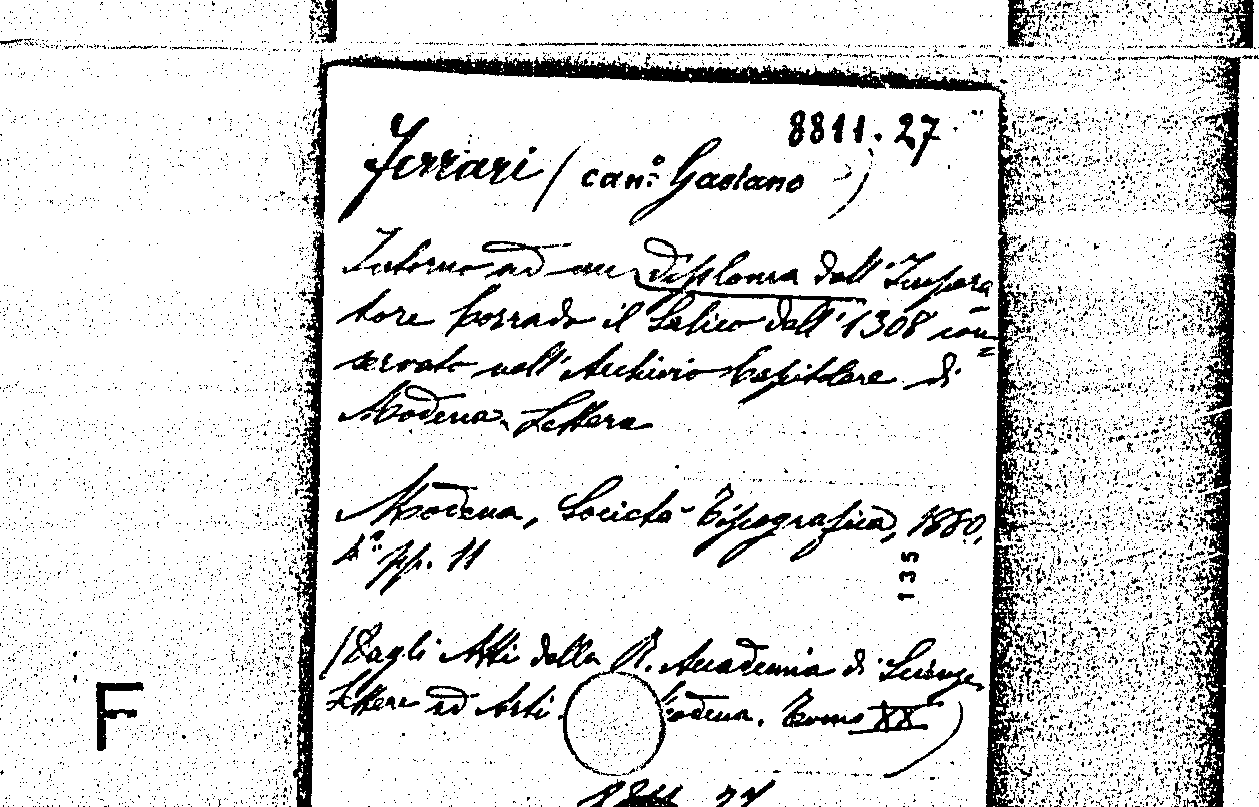 8811.27
Ferrari (can.º Gaetano)
Intorno ad un diploma dell'Impera
tore Corrado il Salico dell'1308 con=
servato nell'Archivio Capitolare di
Modena. Lettera
Modena, Società Tipografica, 1880,
4º pp. 11
135
(Dagli Atti della R. Accademia di Scienze,
Lettere ed Arti odena. Tomo XX)
F
8811 27